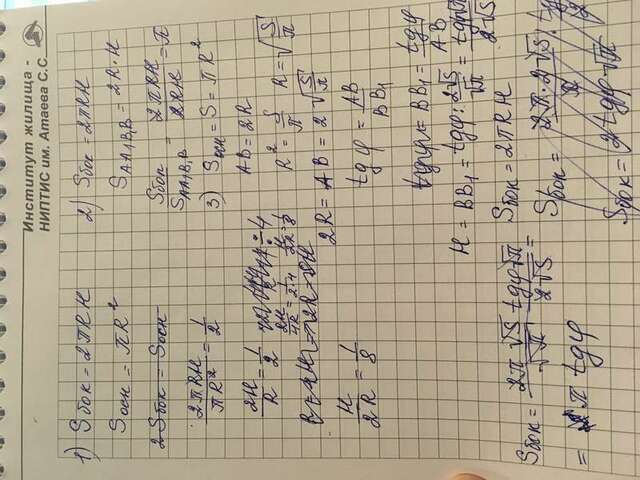 Институт жилища -
НИПТИС им. Атаева С.С.
1) Sбок = 2πRH
Sосн = πR²
2Sбок = Sосн
2πRH/πR² = 1/2
2H/R = 1/2 ÷4
2H/4R = 1/2·4 H/2R = 1/8
H/2R = 1/8
2) Sбок = 2πRH
SAA₁B₁B = 2R·H
Sбок/SAA₁B₁B = 2πRH/2RH = π
3) Sосн = S = πR²
AB = 2R
R² = S/π R = √S/π
2R = AB = 2√S/π
tgφ = AB/BB₁
BB₁ = tgφ/AB
H = BB₁ = tgφ : 2√S/√π = tgφ√π/2√S
Sбок = 2πRH
Sбок = 2π·2√S/π
Sбок = 2tgφ√π
Sбок = 2π√S/√π tgφ√π/2√S =
= π tgφ